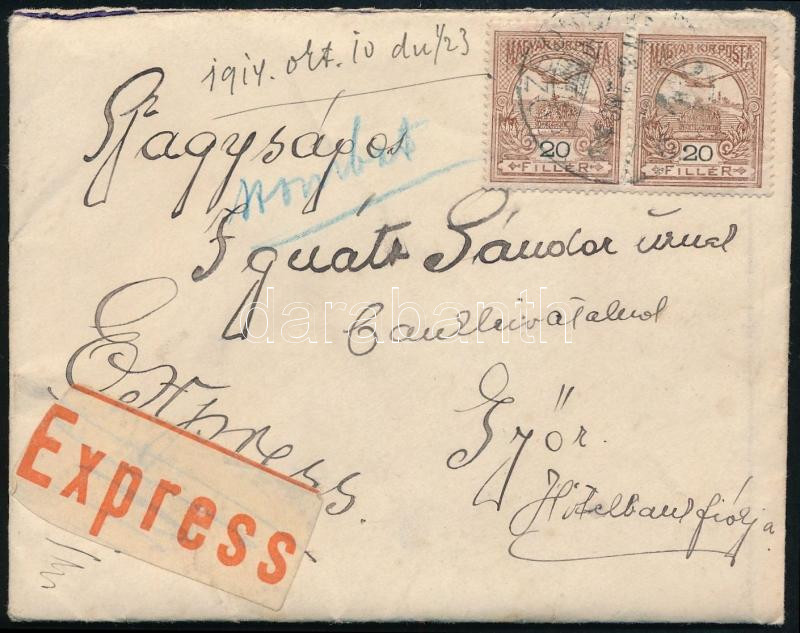 1914. okt. 10 du ½3
MAGYAR KIR. POSTA
MAGYAR KIR. POSTA
20
FILLÉR
20
FILLÉR
Nagyságos
szombat
Ignátz Sándor úrnak
darabanth
Express
Győr
Express
Hitelbank fiókja